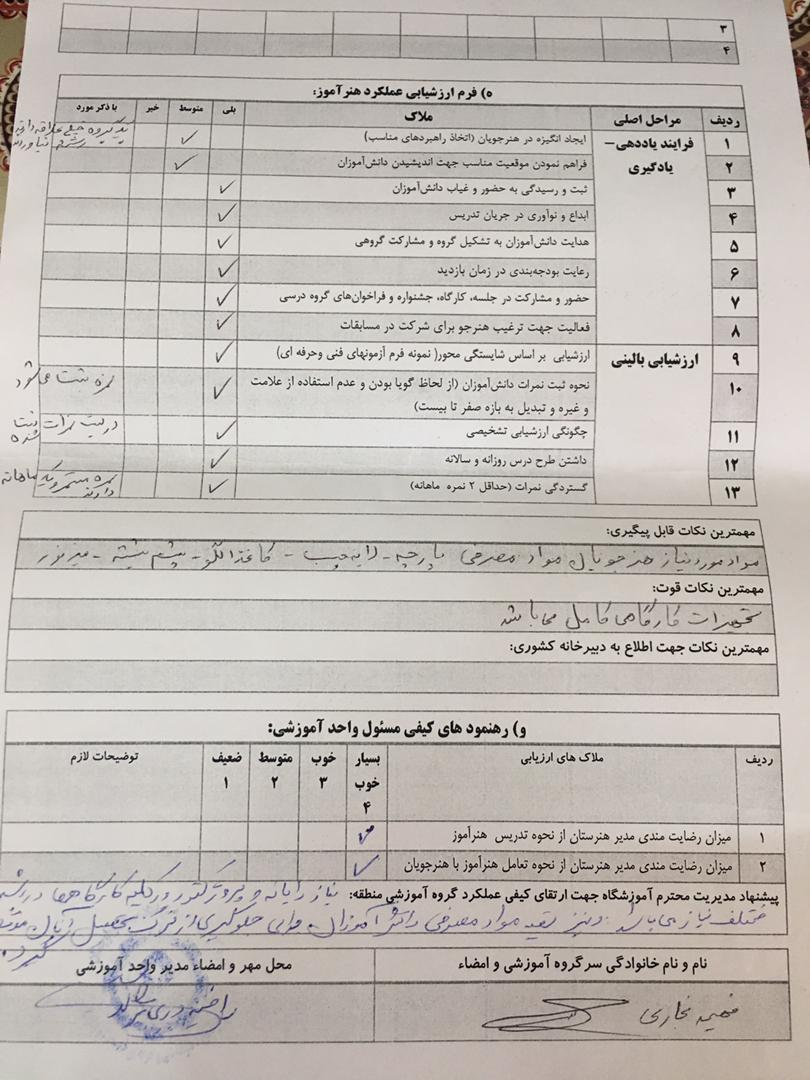 ۳
۴
ه) فرم ارزشیابی عملکرد هنرآموز:
ردیف مراحل اصلی ملاک بلی متوسط خیر با ذکر مورد
۱ فرایند یاددهی – یادگیری ایجاد انگیزه در هنرجویان (اتخاذ راهبردهای مناسب) ✓
۲ فراهم نمودن موقعیت مناسب جهت اندیشیدن دانش‌آموزان ✓
۳ ثبت و رسیدگی به حضور و غیاب دانش‌آموزان ✓
۴ ابداع و نوآوری در جریان تدریس ✓
۵ هدایت دانش‌آموزان به تشکیل گروه و مشارکت گروهی ✓
۶ رعایت بودجه‌بندی در زمان بازدید ✓
۷ حضور و مشارکت در جلسه، کارگاه، جشنواره و فراخوان‌های گروه درسی ✓
۸ فعالیت جهت ترغیب هنرجو برای شرکت در مسابقات ✓
۹ ارزشیابی بالینی ارزشیابی بر اساس شایستگی محور( نمونه فرم آزمونهای فنی وحرفه ای) ✓
۱۰ نحوه ثبت نمرات دانش‌آموزان (از لحاظ گویا بودن و عدم استفاده از علامت ✓ نمره ثبت می‌شود
و غیره و تبدیل به بازه صفر تا بیست)
۱۱ چگونگی ارزشیابی تشخیصی ✓ نمرات ثبت شده
۱۲ داشتن طرح درس روزانه و سالانه ✓
۱۳ گستردگی نمرات (حداقل ۲ نمره ماهانه) ✓ نمره مستمر ماهانه دارند
مهمترین نکات قابل پیگیری:
مواد مورد نیاز هنرجویان مواد مصرفی پارچه - لایه چسب - کاغذ الگو - پشم شیشه -
مهمترین نکات قوت:
تجهیزات کارگاهی کامل می باشد
مهمترین نکات جهت اطلاع به دبیرخانه کشوری:
و) رهنمود های کیفی مسئول واحد آموزشی:
ردیف ملاک های ارزیابی بسیار خوب ۴ خوب ۳ متوسط ۲ ضعیف ۱ توضیحات لازم
۱ میزان رضایت مندی مدیر هنرستان از نحوه تدریس هنرآموز ✓
۲ میزان رضایت مندی مدیر هنرستان از نحوه تعامل هنرآموز با هنرجویان ✓
پیشنهاد مدیریت محترم آموزشگاه جهت ارتقای کیفی عملکرد گروه آموزشی منطقه: نیاز رایانه و پروژکتور در کلیه کارگاهها در رشته
مختلف نیاز می باشد و نیز بقیه مواد مصرفی دانش آموزان برای جلوگیری از ترک تحصیل آنان
نام و نام خانوادگی سرگروه آموزشی و امضاء
محل مهر و امضاء مدیر واحد آموزشی